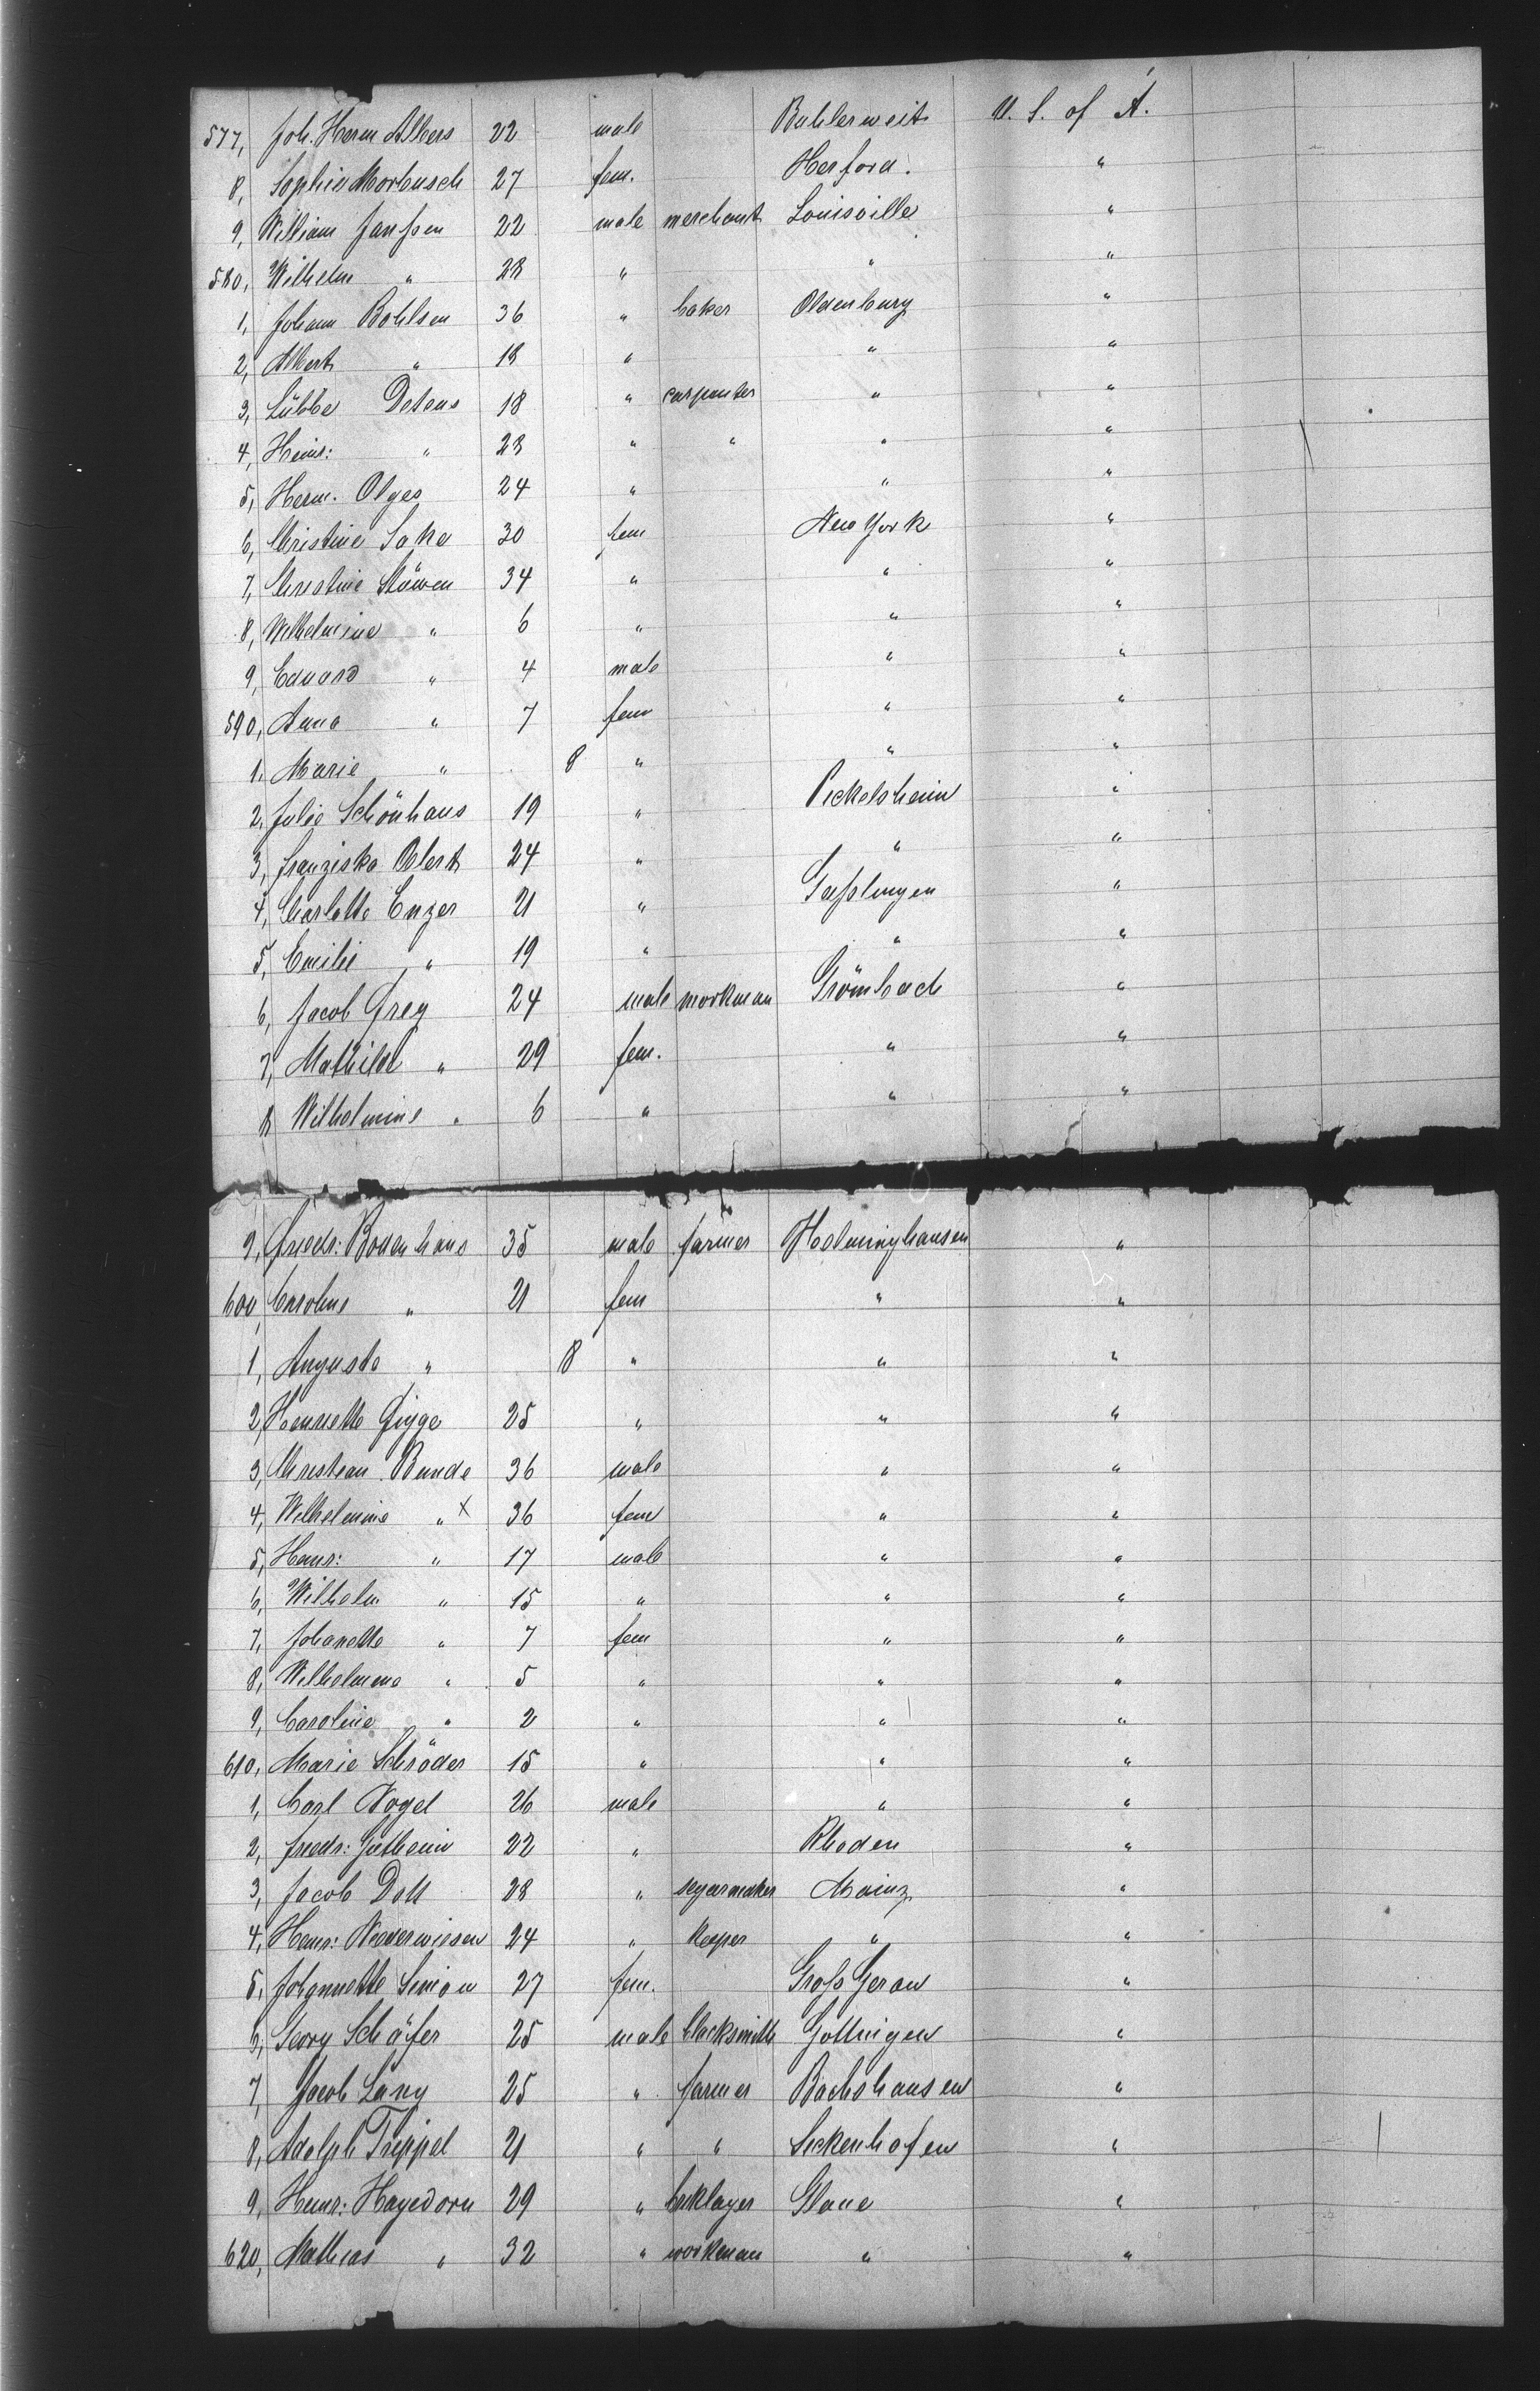 577, Joh. Herm Albers 22 male Buhlerweit U. S. of A.
8, Sophie Morbusch 27 fem. Herford. "
9, William Janssen 22 male merchant Louisville "
580, Wilhelm " 28 " " "
1, Johann Bohlsen 36 " baker Oldenburg "
2, Albert " 18 " " "
3, Lübbe Detens 18 " carpenter " "
4, Heinr: " 28 " " " "
5, Herm. Olges 24 " " "
6, Christine Sake 30 fem New York "
7, Christine Stüwen 34 " " "
8, Wilhelmine " 6 " " "
9, Eduard " 4 male " "
590, Anna " 7 fem " "
1, Marie " 8 " " "
2, Julie Schönhaus 19 " Peckelsheim "
3, Franziska Oslert 24 " " "
4, Charlotte Enzer 21 " Gusslingen "
5, Emilie " 19 " " "
6, Jacob Frey 24 male workman Grömbach "
7, Mathilde " 29 fem. " "
8 Wilhelmine " 6 " " "
9, Friedr: Bodenhaus 35 male farmer Helminghausen "
600, Caroline " 21 fem " "
1, Auguste " 8 " " "
2, Henriette Figge 25 " " "
3, Christian Bunde 36 male " "
4, Wilhelmine " x 36 fem " "
5, Heinr: " 17 male " "
6, Wilhelm " 15 " " "
7, Johanette " 7 fem " "
8, Wilhelmine " 5 " " "
9, Caroline " 2 " " "
610, Marie Schröder 15 " " "
1, Carl Vogel 26 male " "
2, Friedr: Gutheim 22 " Rhoden "
3, Jacob Doll 28 " segarmaker Mainz "
4, Heinr: Niederwiesen 24 " keeper " "
5, Johannette Simon 27 fem. Gross Gerau "
6, Georg Schäfer 25 male blacksmith Gottingen "
7, Jacob Lang 25 " farmer Bachshausen "
8, Adolph Trippel 21 " " Seckenhofen "
9, Heinr: Hagedorn 29 " bricklayer Glane "
620, Mathias " 32 " workman " "